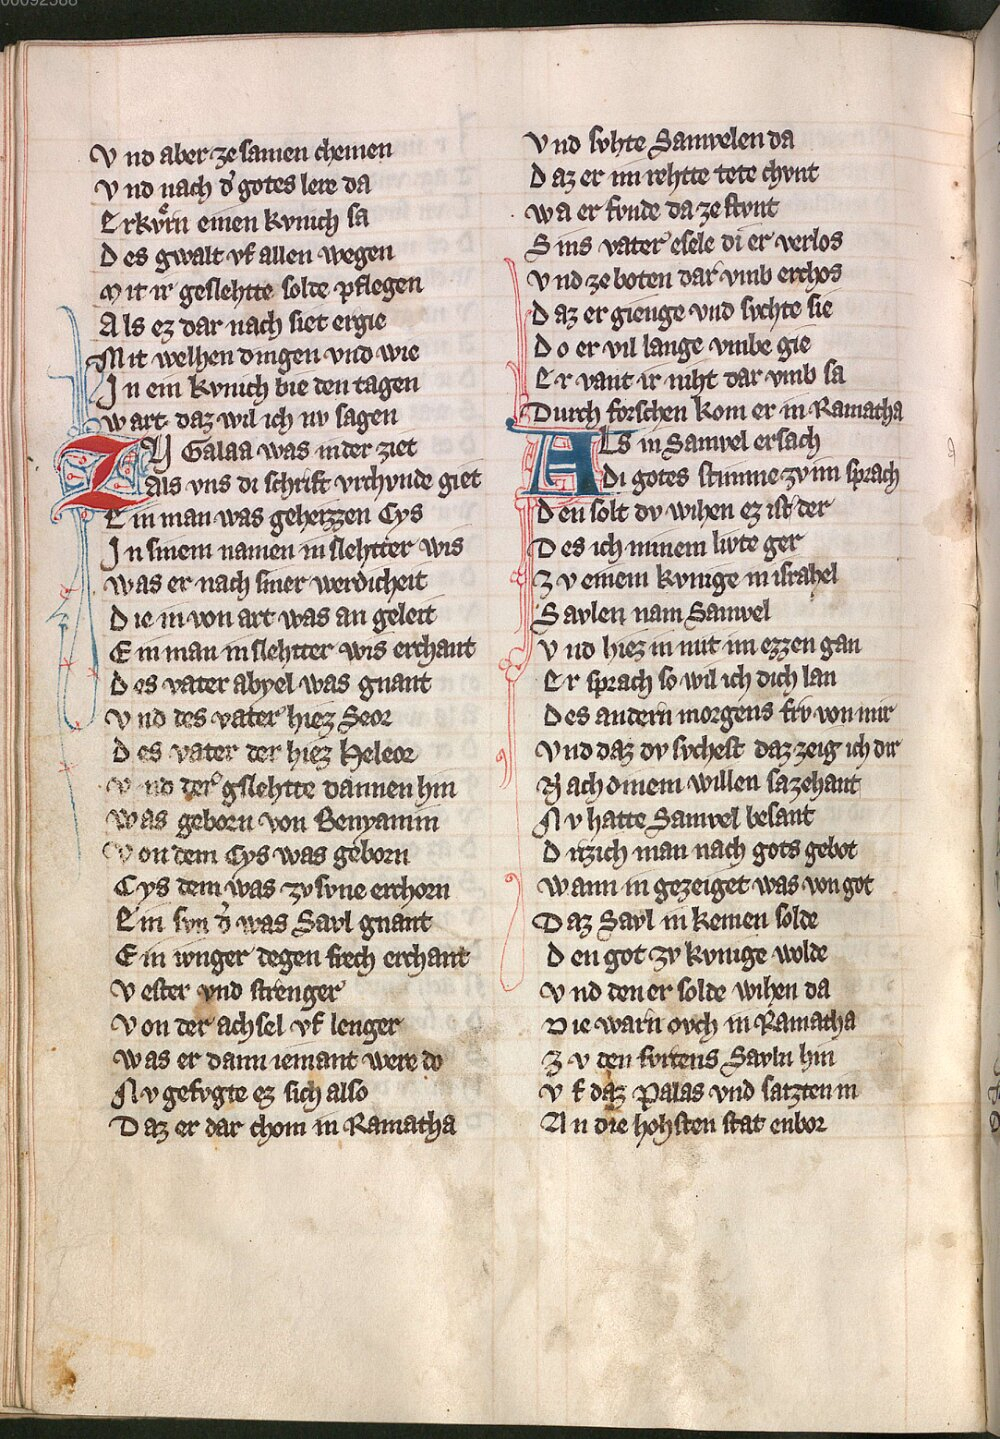 00092588
Vnd aber ze samen chemen
Vnd nach d' gotes lere da
Erkv̊rn einen kvnich sa
Des gwalt vf allen wegen
Mit ir geslehtte solde pflegen
Als ez dar nach siet ergie
Mit welhen dingen vnd wie
In ein kvnich bie den tagen
wart daz wil ich nv sagen
ZV Galaa was in der ziet
als vns di schrift vrchvnde giet
Ein man was geheizzen Cys
In sinem namen in slehtter wis
was er nach siner werdicheit
Die in von art was an geleit
Ein man in slehtter wis erchant
Des vater abyel was gnant
Vnd des vater hiez Seor
Des vater der hiez Heleor
Vnd der gslehtte dannen hin
was geborn von Benyamin
Von dem Cys was geborn
Cys dem was zv svne erchorn
Ein svn d' was Savl gnant
Ein ivnger degen frech erchant
Vester vnd strenger
Von der achsel vf lenger
was er dann iemant were do
Nv gefvgte ez sich also
Daz er dar chom in Ramatha
Vnd svhte Samvelen da
Daz er im rehtte tete chvnt
wa er fvnde da ze stvnt
Sins vater esele di er verlos
Vnd ze boten dar vmb erchos
Daz er gienge vnd svchte sie
Do er vil lange vmbe gie
Er vant ir niht dar vmb sa
Durch forschen kom er in Ramatha
ALs in Samvel ersach
Di gotes stimme zv im sprach
Den solt dv wihen ez ist der
Des ich minem livte ger
Zv einem kvnige in israhel
Savlen nam Samvel
Vnd hiez in mit im ezzen gan
Er sprach so wil ich dich lan
Des andern morgens frv von mir
Vnd daz dv svchest daz zeig ich dir
Nach dinem willen sazehant
Nv hatte Samvel besant
Drizich man nach gots gebot
wann in gezeiget was von got
Daz Savl in kemen solde
Den got zv kvnige wolde
Vnd den er solde wihen da
Die warn ovch in Ramatha
Zv den fvrtens Savln hin
Vf daz Palas vnd satzten in
An die hohsten stat enbor